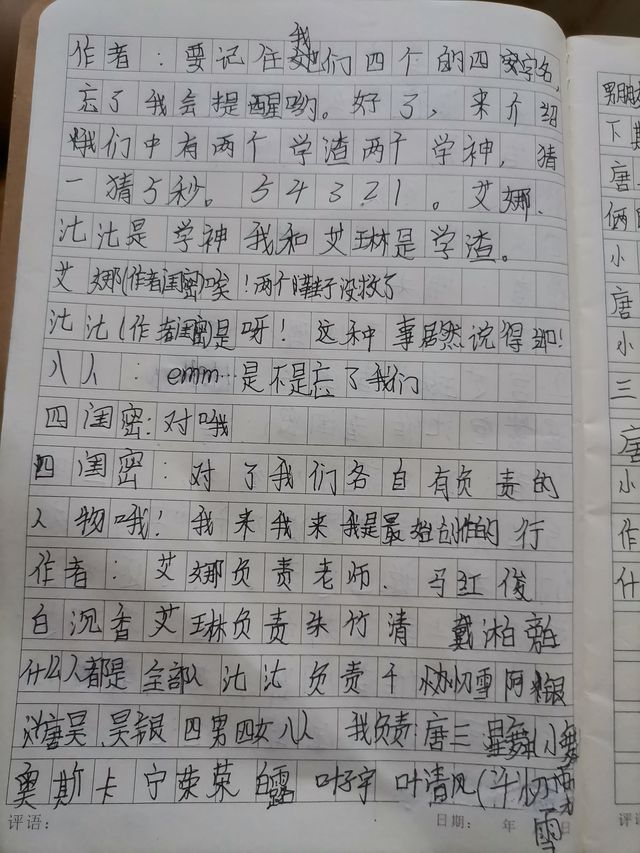 作者：要记住我们四个的四字名，
忘了我会提醒哟。好了，来介绍
我们中有两个学渣两个学神，猜
一猜5秒。54321。艾娜、
沈沈是学神我和艾琳是学渣。
艾娜(作者闺密)唉！两个瞎子没救了
沈沈(作者闺密)是呀！这种事居然说得出!
八人：emm…是不是忘了我们
四闺密：对哦
四闺密：对了我们各自有负责的
人物哦！我来我来我是最始创作的行
作者：艾娜负责老师、马红俊
白沉香艾琳负责朱竹清 戴沐白
什么人都是全部人沈沈负责千仞雪阿银
唐昊 四男四女八人 我负责唐三 小舞
奥斯卡 宁荣荣 白露 叶子宇 叶清风
男朋友
下
唐
俩
小
唐
小
三
唐
小
作
什
评语：
日期： 年 日
评语